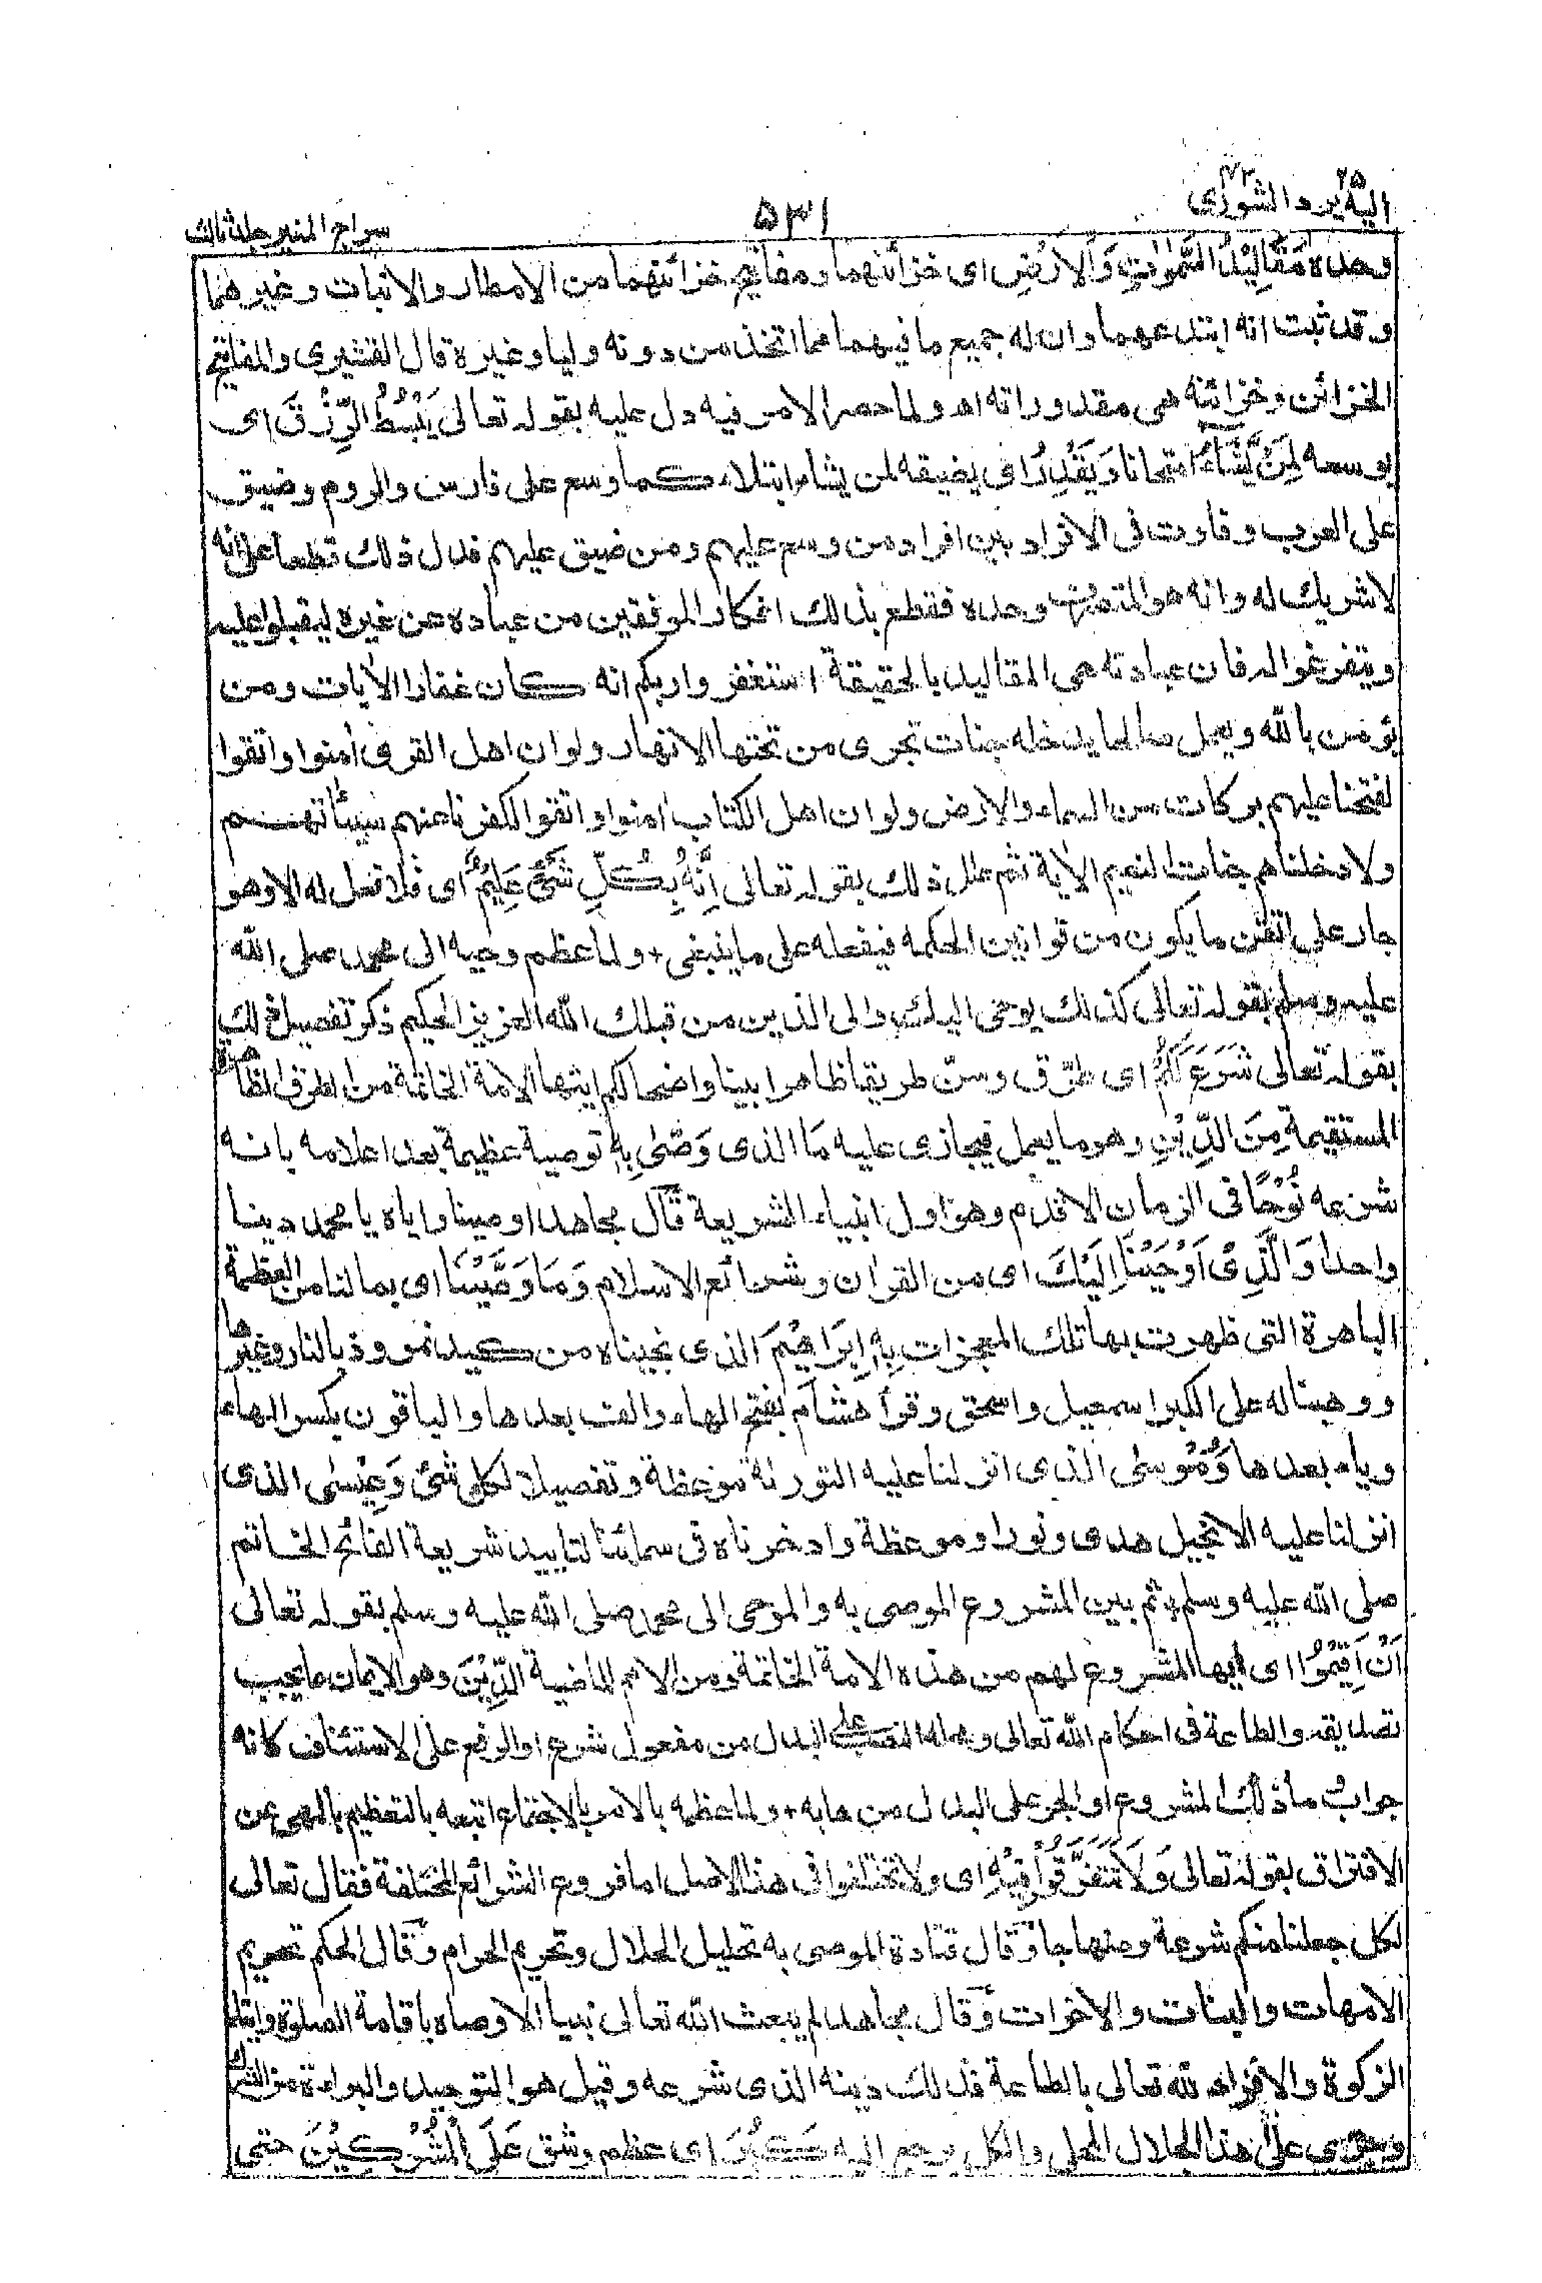 اليه يرد ٢٥ الشورى ٤٢
٥٣١
سراج المنير جلد ثالث
وحده مَقَالِيْدُ السَّمٰوٰتِ وَالْاَرْضِ اى خزائنهما ومفاتيح خزائنهما من الامطار والانبات وغيرهما
وقد ثبت انه ابتدعهما وان له جميع ما فيهما مما اتخذ من دونه وليا وغيره قال القشيرى والمفاتيح
الخزائن وخزائنه هى مقدوراته اه ولما حصر الامر فيه دل عليه بقوله تعالى يَبْسُطُ الرِّزْقَ اى
يوسعه لِمَنْ يَّشَآءُ امتحانا وَيَقْدِرُ اى يضيقه لمن يشاء ابتلاء كما وسع على فارس والروم وضيق
على العرب وفاوت فى الافراد بين افراد من وسع عليهم ومن ضيق عليهم فدل ذلك قطعا على انه
لا شريك له وانه هو المتصرف وحده فقطع بذلك افكار الموفقين من عباده عن غيره ليقبلوا عليه
ويتفرغوا له فان عبادته هى المقاليد بالحقيقة استغفروا ربكم انه كان غفارا الأيات ومن
يؤمن بالله ويعمل صالحا يدخله جنات تجرى من تحتها الانهار ولو ان اهل القرى أمنوا واتقوا
لفتحنا عليهم بركات من السماء والارض ولو ان اهل الكتاب أمنوا واتقوا لكفرنا عنهم سيئاتهم
ولادخلناهم جنات النعيم الأية ثم علل ذلك بقوله تعالى اِنَّهٗ بِكُلِّ شَىْءٍ عَلِيْمٌ اى فلا فعل له الا وهو
جار على اتقن ما يكون من قوانين الحكمة فيفعله على ما ينبغى + ولما عظم وحيه الى محمد صلى الله
عليه وسلم بقوله تعالى كذلك يوحى اليك والى الذين من قبلك الله العزيز الحكيم ذكر تفصيل ذلك
بقوله تعالى شَرَعَ لَكُمْ اى طرّق وسنّ طريقا ظاهرا بينا واضحا لكم ايتها الامة الخاتمة من الطرق الظاهرة
المستقيمة مِنَ الدِّيْنِ وهو ما يعمل فيجازى عليه مَا الذى وَصّٰى بِهٖ توصية عظيمة بعد اعلامه بانه
شرعه نُوْحًا فى الزمان الاقدم وهو اول انبياء الشريعة قال مجاهد اوصيناك واياه يا محمد دينا
واحدا وَالَّذِىْ اَوْحَيْنَآ اِلَيْكَ اى من القران وشرائع الاسلام وَمَا وَصَّيْنَا اى بما لنا من العظمة
الباهرة التى ظهرت بها تلك المعجزات بِهٖٓ اِبْرَاهِيْمَ الذى نجيناه من كيد نمروذ بالنار وغيرها
ووهبنا له على الكبر اسمعيل واسحٰق وقرأ هشام بفتح الهاء والف بعدها والباقون بكسر الهاء
وياء بعدها وَمُوْسٰى الذى انزلنا عليه التورٰة موعظة وتفصيلا لكل شئ وَعِيْسٰى الذى
انزلنا عليه الانجيل هدى ونورا وموعظة وادخرناه فى سمائنا لتاييد شريعة الفاتح الخاتم
صلى الله عليه وسلم ثم بين المشروع الموصى به والموحى الى محمد صلى الله عليه وسلم بقوله تعالى
اَنْ اَقِيْمُوا اى ايها المشروع لهم من هذه الامة الخاتمة ومن الامم الماضية الدِّيْنَ وهو الايمان بما يجب
تصديقه والطاعة فى احكام الله تعالى ومحله النصب على البدل من مفعول شرع او الرفع على الاستئناف كانه
جواب وما ذلك المشروع او الجر على البدل من ها به + ولما عظمه بالامر بالاجتماع اتبعه بالتعظيم بالنهى عن
الافتراق بقوله تعالى وَلَا تَتَفَرَّقُوْا فِيْهِ اى ولا تختلفوا فى هذا الاصل اما فروع الشرائع المختلفة فقال تعالى
لكل جعلنا منكم شرعة ومنهاجا وقال قتادة الموصى به تحليل الحلال وتحريم الحرام وقال الحكم تحريم
الامهات والبنات والاخوات وقال مجاهد لم يبعث الله تعالى نبيا الا وصاه باقامة الصلوة وايتاء
الزكوة والاقرار لله تعالى بالطاعة فذلك دينه الذى شرعه وقيل هو التوحيد والبراءة من الشرك
وجرى على هذا الجلال المحلى والكل يرجع اليه كَبُرَ اى عظم وشق عَلَى الْمُشْرِكِيْنَ حتى